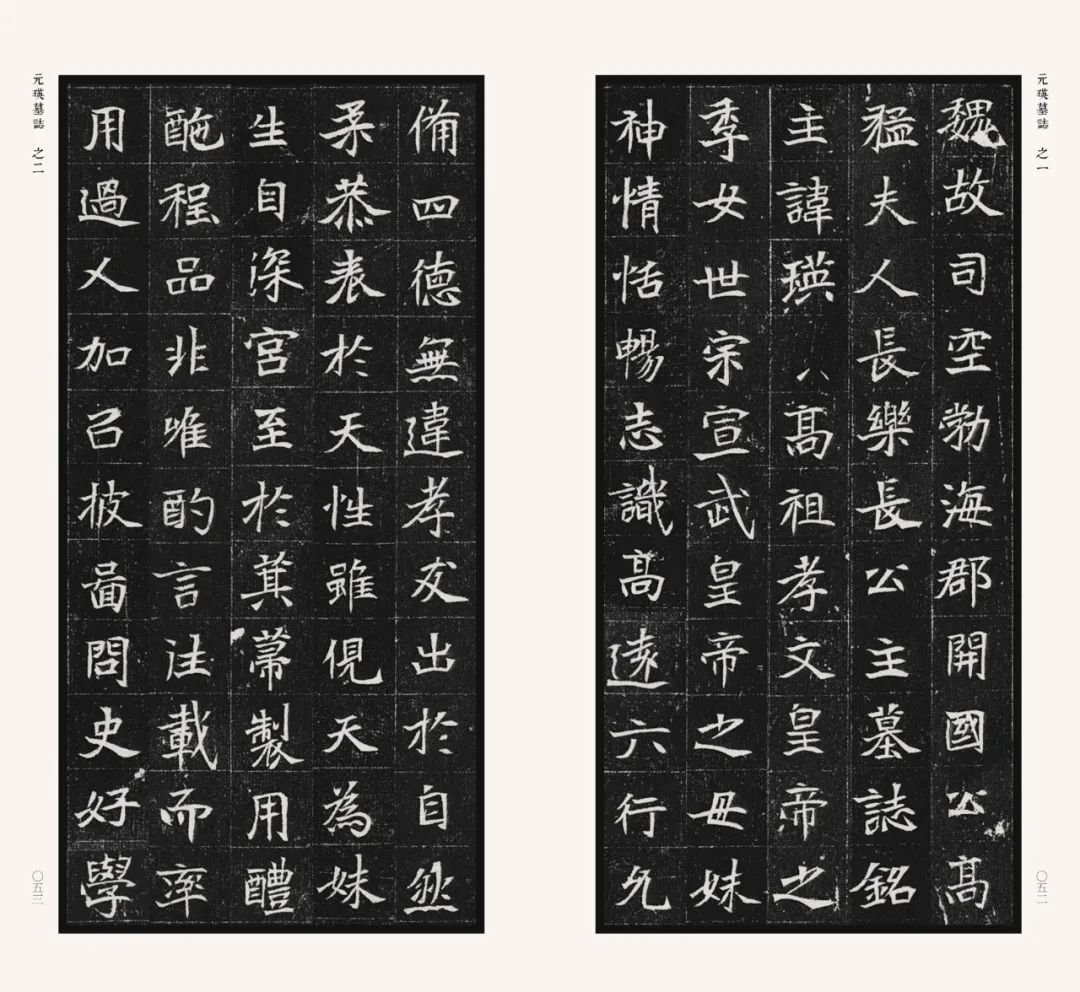 元瑛墓誌 之一
魏故司空勃海郡開國公高
猛夫人長樂長公主墓誌銘
主諱瑛高祖孝文皇帝之
季女世宗宣武皇帝之母妹
神情恬暢志識高遠六行允
〇五二
備四德無違孝友出於自然
柔恭表於天性雖俔天為妹
生自深宮至於箕帚製用醴
酏程品非唯酌言注載而率
用過人加㠯披圖問史好學
元瑛墓誌 之二
〇五三